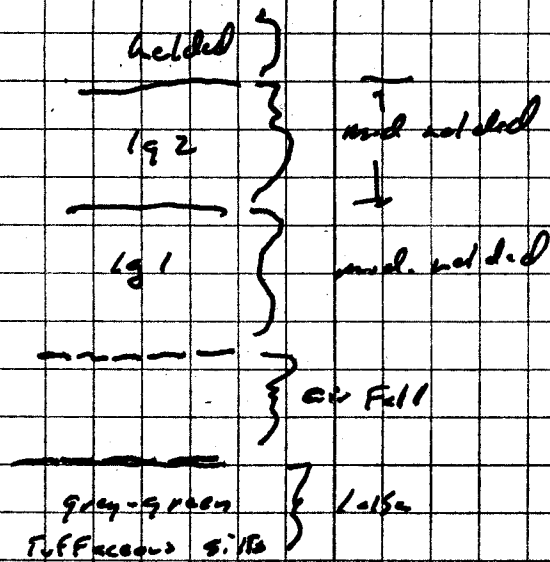 welded
Ig 2
mod welded
Ig 1
mod. welded
air Fall
grey-green
Tuffaceous silts